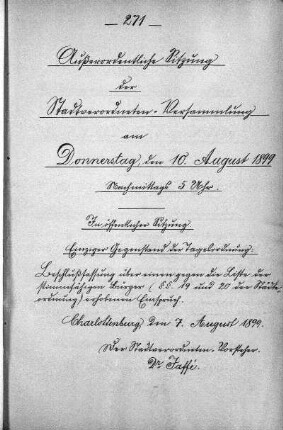 — 271 —
Außerordentliche Sitzung
der
Stadtverordneten-Versammlung
am
Donnerstag, den 10. August 1899
Nachmittags 5 Uhr.
In öffentlicher Sitzung.
Einziger Gegenstand der Tagesordnung.
Beschlußfassung über einen gegen die Liste der
stimmfähigen Bürger (§§. 19 und 20 der Städte-
ordnung) erhobenen Einspruch.
Charlottenburg, den 7. August 1899.
Der Stadtverordneten-Vorsteher.
Dr Jaffé.